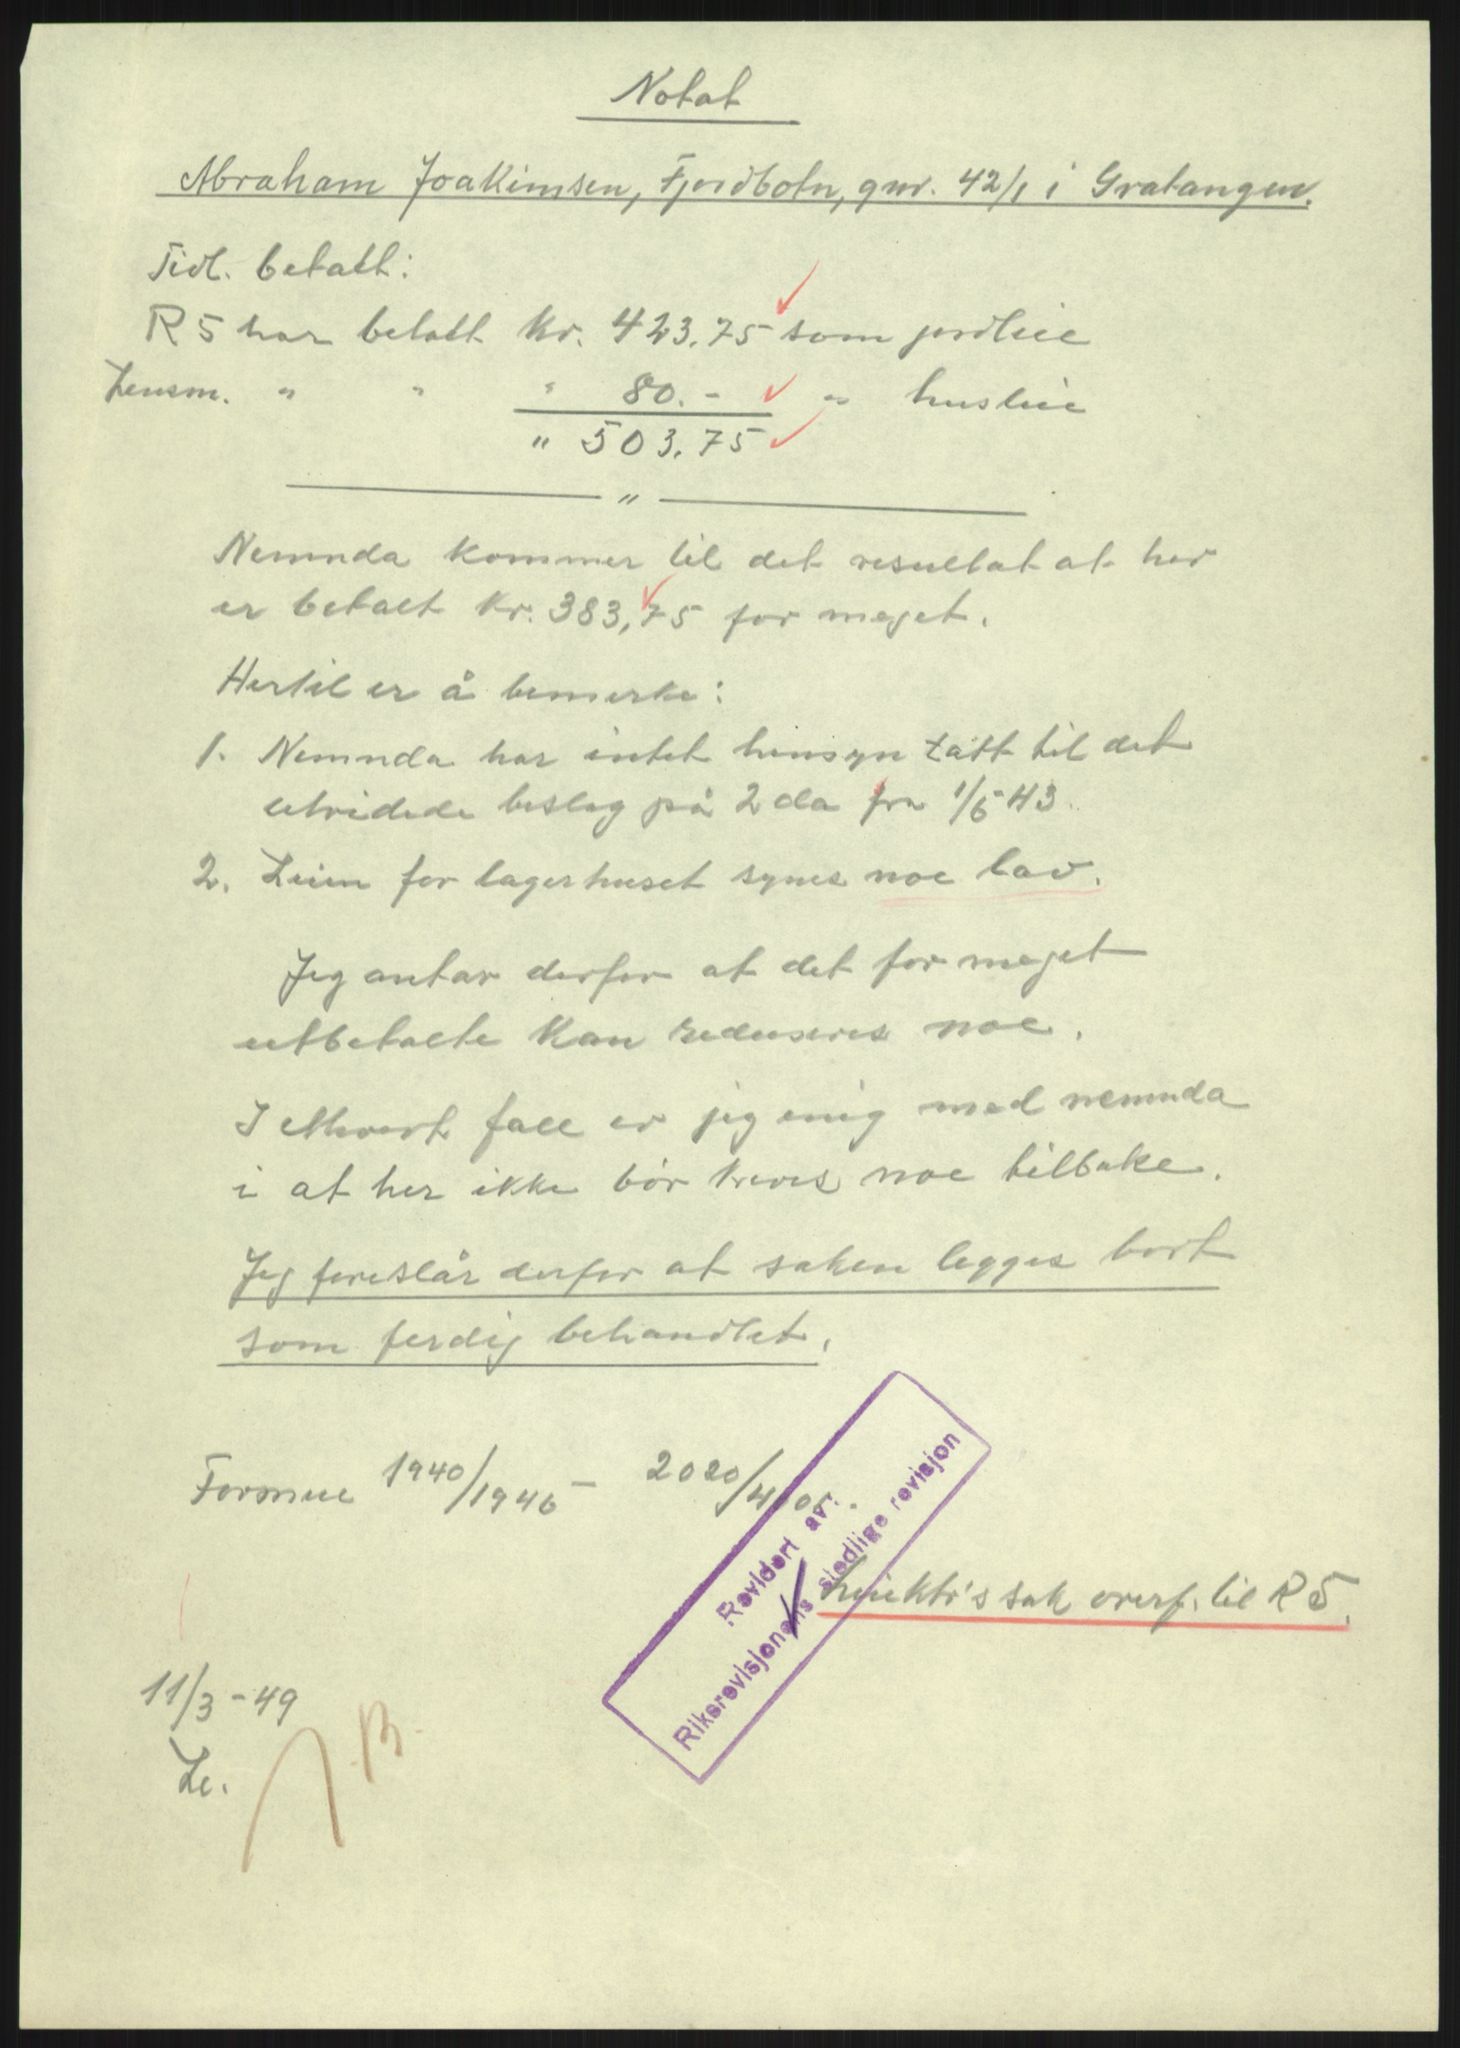 Notat
Abraham Joakimsen, Fjordbotn, gnr. 42/1 i Gratangen.
Tidl. betalt:
R 5 har betalt kr. 423.75 som jordleie
Lensm. " " " 80.- " husleie
" 503.75
"
Nemnda kommer til det resultat at her
er betalt kr. 383,75 for meget.
Hertil er å bemerke:
1. Nemnda har intet hensyn tatt til det
utvidede beslag på 2 da fra 1/5 43.
2. Leien for lagerhuset synes noe lav.
Jeg antar derfor at det for meget
utbetalte kan reduseres noe.
I ethvert fall er jeg enig med nemnda
i at her ikke bør kreves noe tilbake.
Jeg foreslår derfor at saken legges bort
som ferdig behandlet.
Formue 1940/1945 - 2020/4100.
Revidert av:
Riksrevisjonens stedlige revisjon
sak overf. til R 5.
11/3-49
Le.